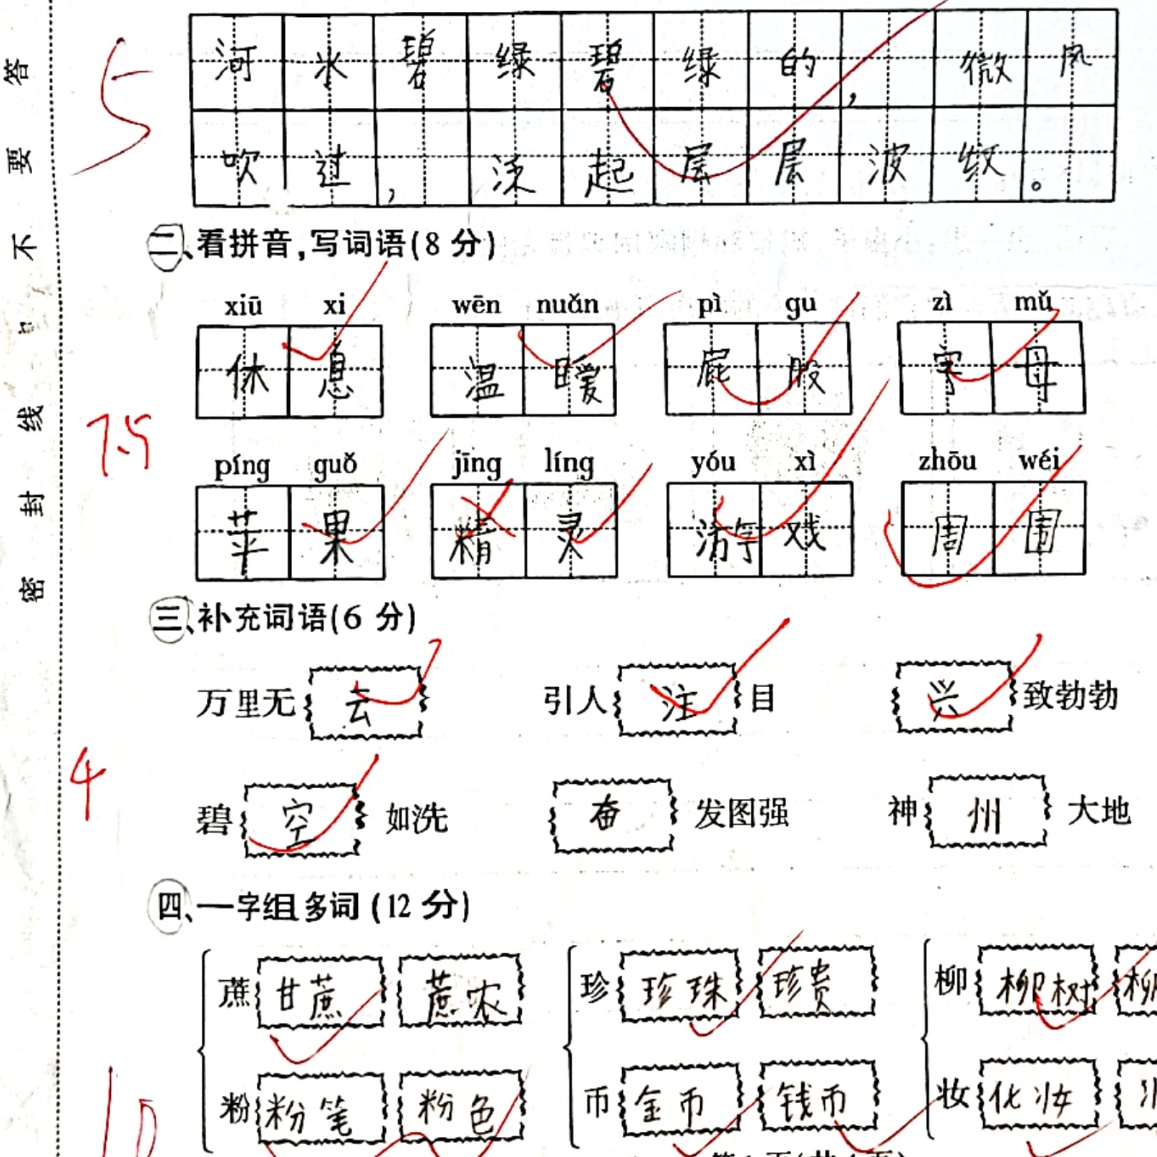 河水碧绿碧绿的，微风
吹过，泛起层层波纹。
二、看拼音,写词语(8分)
xiū xi wēn nuǎn pì gu zì mǔ
休息 温暖 屁股 字母
píng guǒ jīng líng yóu xì zhōu wéi
苹果 精灵 游戏 周围
三、补充词语(6分)
万里无云 引人注目 兴致勃勃
碧空如洗 奋发图强 神州大地
四、一字组多词(12分)
蔗 甘蔗 蔗农 珍 珍珠 珍贵 柳 柳树 柳
粉 粉笔 粉色 币 金币 钱币 妆 化妆
答
要
不
线
封
密
5
7.5
4
10